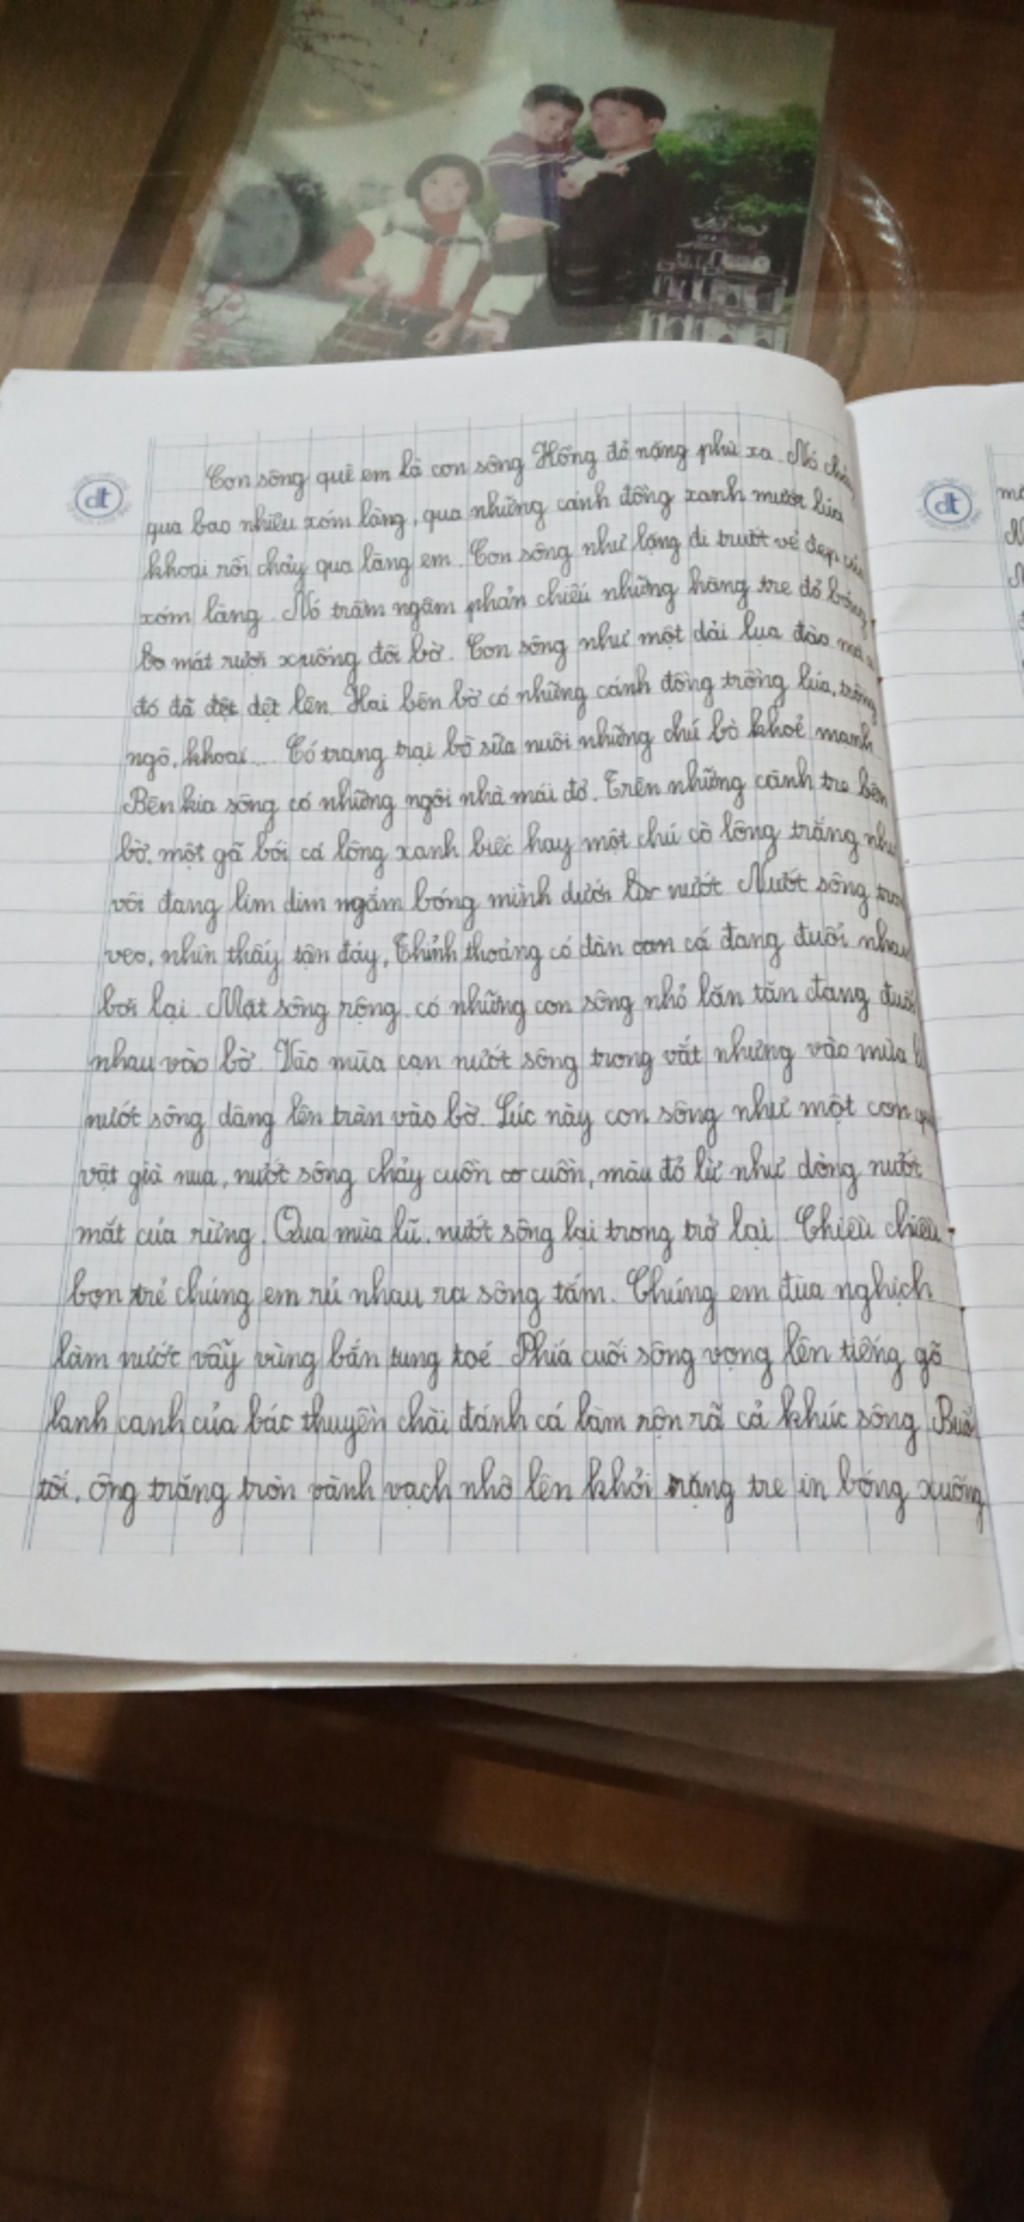 dt
Con sông quê em là con sông Hồng đỏ nặng phù xa. Nó chảy
qua bao nhiêu xóm làng, qua những cánh đồng xanh mướt lúa
khoai rồi chảy qua làng em. Con sông như lặng đi trước vẻ đẹp của
xóm làng. Nó trầm ngâm phản chiếu những hàng tre đỏ bóng
mát rượi xuống đôi bờ. Con sông như một dải lụa đào mà ai
đó đã dệt lên. Hai bên bờ có những cánh đồng trồng lúa, trồng
ngô, khoai... Có trang trại bò sữa nuôi những chú bò khoẻ mạnh
Bên kia sông có những ngôi nhà mái đỏ. Trên những cành tre bên
bờ, một gã bói cá lông xanh biếc hay một chú cò lông trắng như
vôi đang lim dim ngắm bóng mình dưới nước. Nước sông trong
veo, nhìn thấy tận đáy, Thỉnh thoảng có đàn cá đang đuổi nhau
bơi lại. Mặt sông rộng, có những con sóng nhỏ lăn tăn đang đuổi
nhau vào bờ. Vào mùa cạn nước sông trong vắt nhưng vào mùa lũ
nước sông dâng lên tràn vào bờ. Lúc này con sông như một con quái
vật già nua, nước sông chảy cuồn cuồn, màu đỏ lừ như dòng nước
mắt của rừng. Qua mùa lũ, nước sông lại trong trở lại. Chiều chiều
bọn trẻ chúng em rủ nhau ra sông tắm. Chúng em đùa nghịch
làm nước vẫy vùng bắn tung toé. Phía cuối sông vọng lên tiếng gõ
lanh canh của bác thuyền chài đánh cá làm rộn rã cả khúc sông. Buổi
tối, ông trăng tròn vành vạch nhô lên khỏi rặng tre in bóng xuống
dt